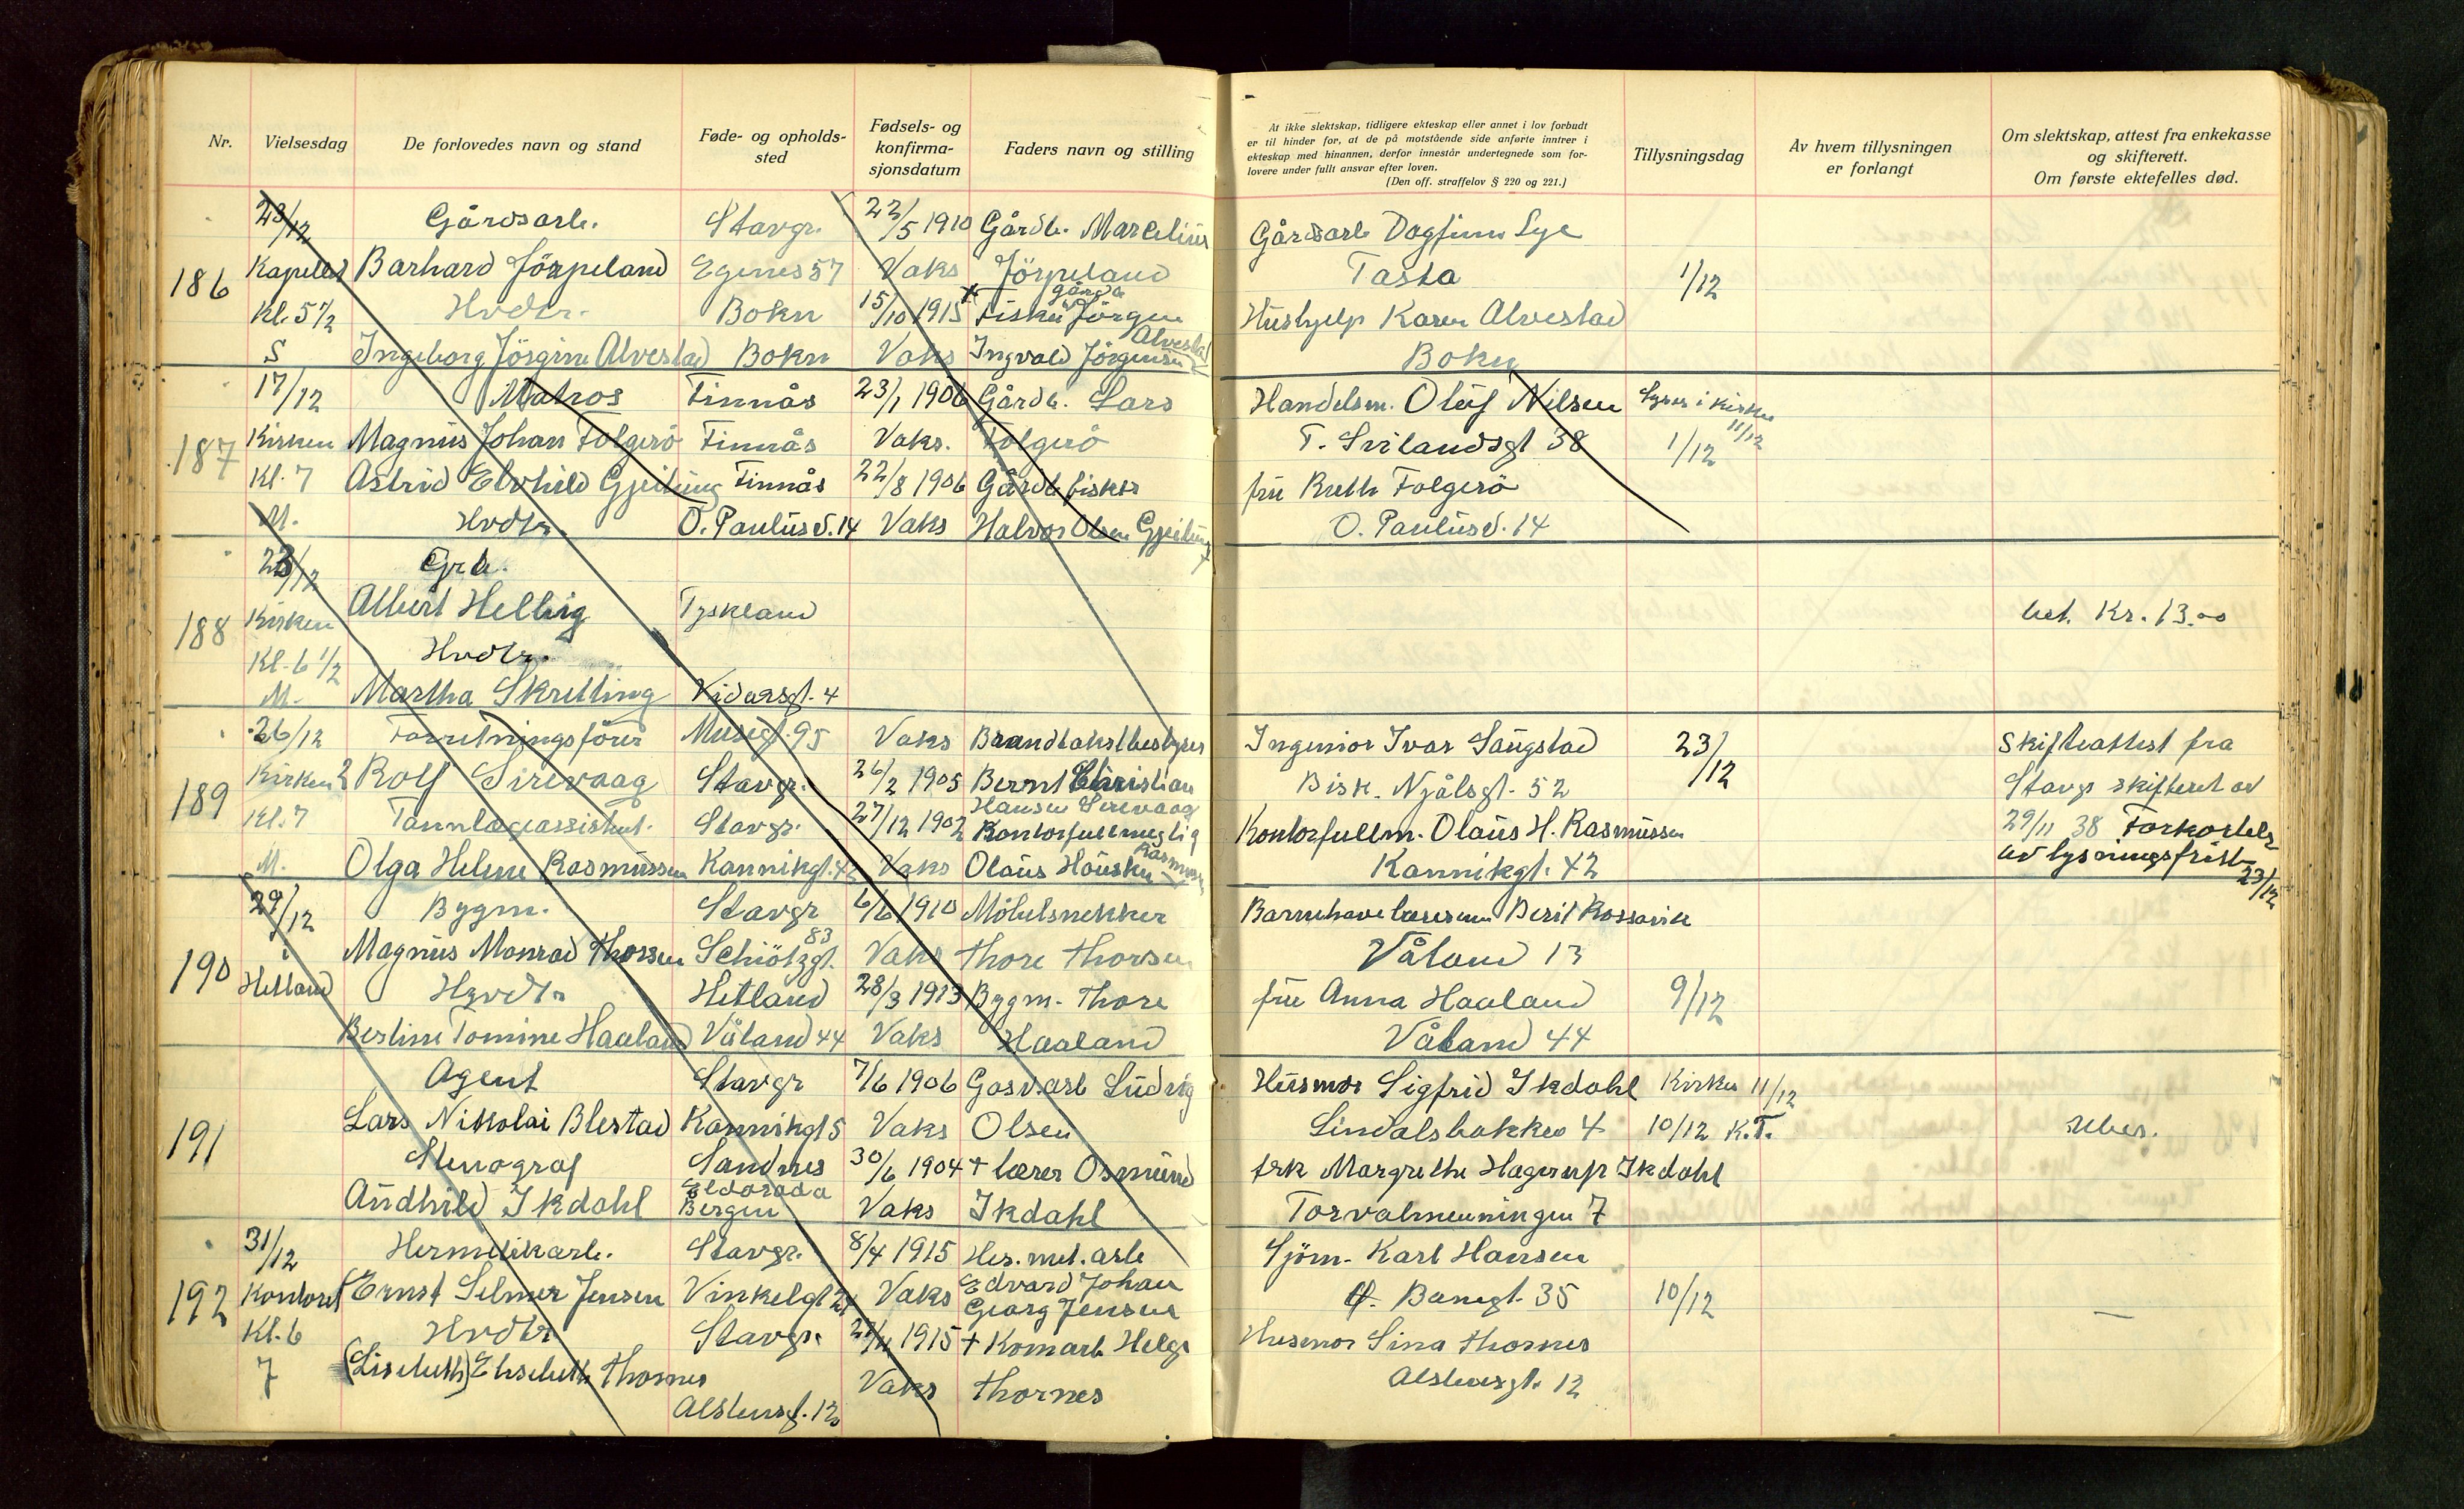 Nr.
Vielsesdag
De forlovedes navn og stand
Føde- og opholds-
sted
Fødsels- og
konfirma-
sjonsdatum
Faders navn og stilling
At ikke slektskap, tidligere ekteskap eller annet i lov forbudt
er til hinder for, at de på motstående side anførte inntrer i
ekteskap med hinannen, derfor innestår undertegnede som for-
lovere under fullt ansvar efter loven.
(Den off. straffelov § 220 og 221.)
Tillysningsdag
Av hvem tillysningen
er forlangt
Om slektskap, attest fra enkekasse
og skifterett.
Om første ektefelles død.
23/12 Gårdsarb. Stavgr. 22/5 1910 Gårdb. Marcelius Gårdsarb Dagfinn Lye
186 Kapellet Barhard Jörpeland Egenes 57 Vaks Jörpeland Tasta 1/12
Kl. 5 1/2 Hvdtr. Bokn 15/10 1915 + Fisker gårdb Jörgen Hushjelp Karen Alvestad
S Ingeborg Jörgine Alvestad Bokn Vaks Ingvald Jörgensen Alvestad Bokn
17/12 Matros Finnås 23/1 1906 Gårdb. Lars Handelsm. Oluf Nilsen Lyses i kirken 11/12
187 Kirken Magnus Johan Folgerö Finnås Vaks. Folgerö T. Svilandsgt 38 1/12
Kl. 7 Astrid Elvhild Gjeitung Finnås 22/8 1906 Gårdb fisker fru Ruth Folgerö
M. Hvdtr. O. Paulusv. 14 Vaks Halvor Olsen Gjeitung O. Paulusv. 14
23/12 Grb.
188 Kirken Albert Helbig Tyskland bet. Kr. 13.00
Kl. 6 1/2 Hvdtr.
M. Martha Skretting Vidarsgt. 4
26/12 Forretningsförer Musegt. 95 Vaks Brandtakstbestyrer Ingeniör Ivar Laugstad 23/12 Skifteattest fra
189 Kirken 2 Rolf Sirevaag Stavgr. 26/2 1905 Bernt Christian Bisk. Njålsgt. 52 Stavgr skifteret av
Hansen Sirevaag
Kl. 7 Tannlægeassistent. Stavgr. 27/12 1902 Kontorfullmegtig Kontorfullm. Olaus H. Rasmussen 29/11 38 Forkortelse
M. Olga Helene Rasmussen Kannikgt. 42 Vaks Olaus Hausken Rasmussen Kannikgt. 42 av lysningsfrist 23/12
29/12 Bygm. Stavgr 6/6 1910 Möbelsnekker Barnehavelærerinne Berit Rossavik
190 i Magnus Monrad Thorsen Schiötzgt. 83 Vaks Thore Thorsen Våland 13
Hetland Hvdtr Hetland 28/3 1913 Bygm. Thore fru Anna Haaland 9/12
Bertine Tomine Haaland Våland 44 Vaks Haaland Våland 44
Agent Stavgr 7/6 1906 Gasv.arb Ludvig Husmor Sigfrid Ikdahl Kirken 11/12
191 Lars Nikolai Blestad Kannikgt 5 Vaks Olsen Lindalsbakken 4 10/12 K.T.
Stenograf Sandnes 30/6 1904 + lærer Osmund frk Margrethe Hagerup Ikdahl
Audhild Ikdahl Eldorado Bergen Vaks Ikdahl Torvalmenningen 7
31/12 Hermetikarb. Stavgr. 8/4 1915 Her. met. arb Sjöm. Karl Hansen
192 Kontoret Ernst Selmer Jensen Vinkelgt 24 Vaks Edvard Johan Banegt. 35 10/12 —
Georg Jensen
Kl. 6 Hvdtr Stavgr. 1915 + Komarb Helge Husmor Lina Thornes
7 (Lisebeth) Elisebeth Thornes Vaks Thornes
Alstensgt. 12 Alstensgt. 12